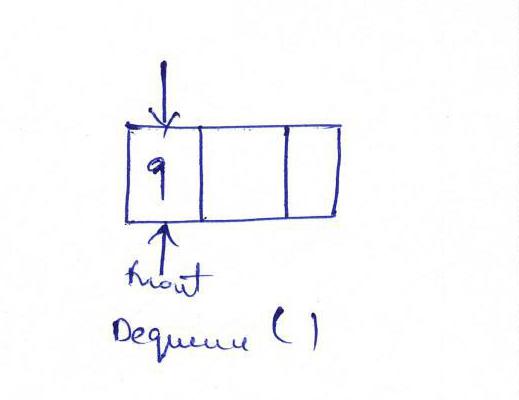 9
Front
Dequeue ( )